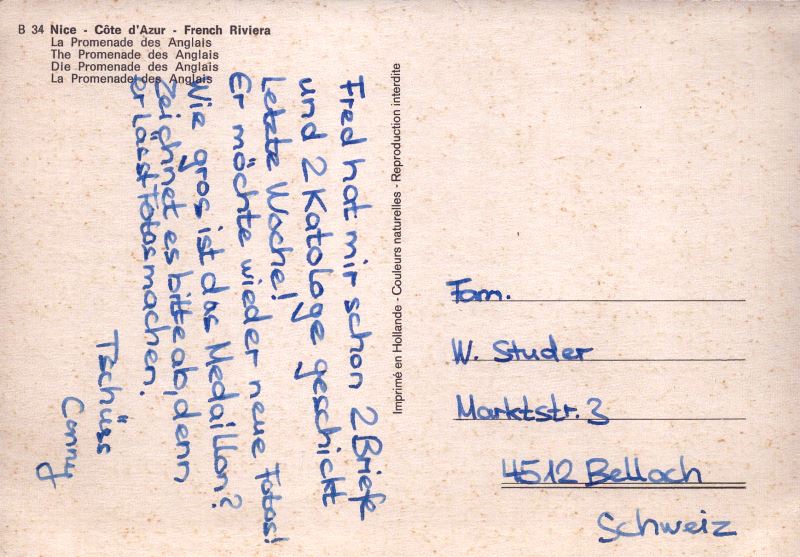 B 34 Nice - Côte d'Azur - French Riviera
La Promenade des Anglais
The Promenade des Anglais
Die Promenade des Anglais
La Promenade des Anglais
Fred hat mir schon 2 Briefe
und 2 Katologe geschickt
Letzte Woche!
Er möchte wieder neue Fotos!
Wie gros ist das Medaillon?
Zeichnet es bitte ab, denn
er lässt Fotos machen.
Tschüss
Conny
Imprimé en Hollande - Couleurs naturelles - Reproduction interdite
Fam.
W. Studer
Marktstr. 3
4512 Bellach
Schweiz